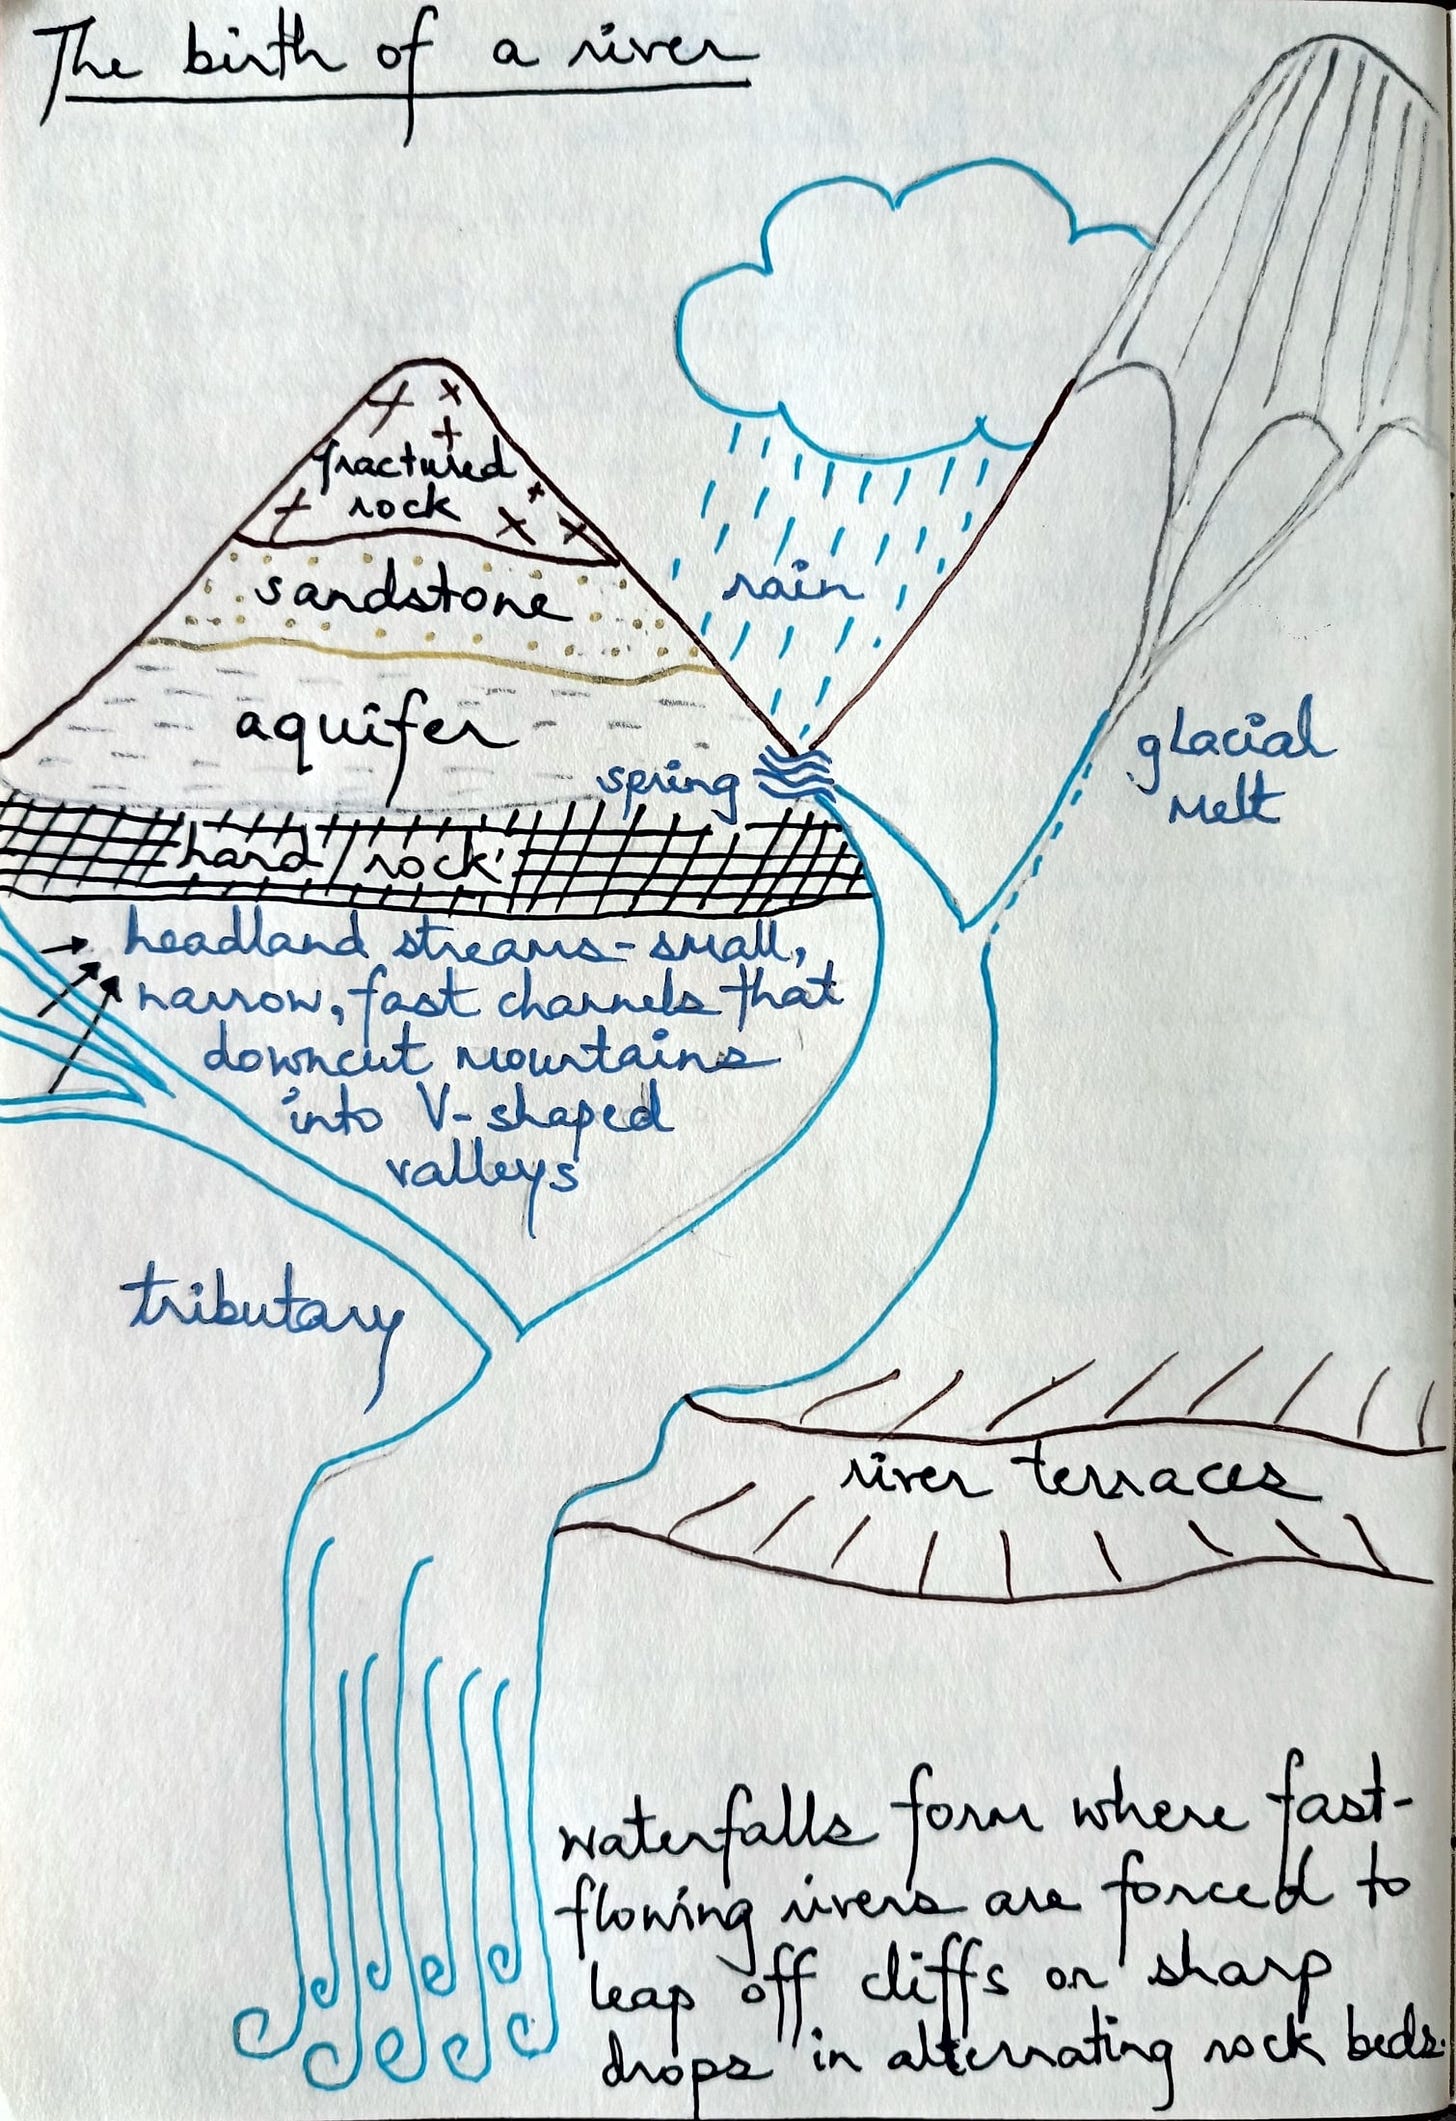 The birth of a river
fractured
rock
sandstone
aquifer
rain
spring
glacial
melt
hard rock
headland streams - small,
narrow, fast channels that
downcut mountains
into V-shaped
valleys
tributary
river terraces
waterfalls form where fast-
flowing rivers are forced to
leap off cliffs or sharp
drops in alternating rock beds.